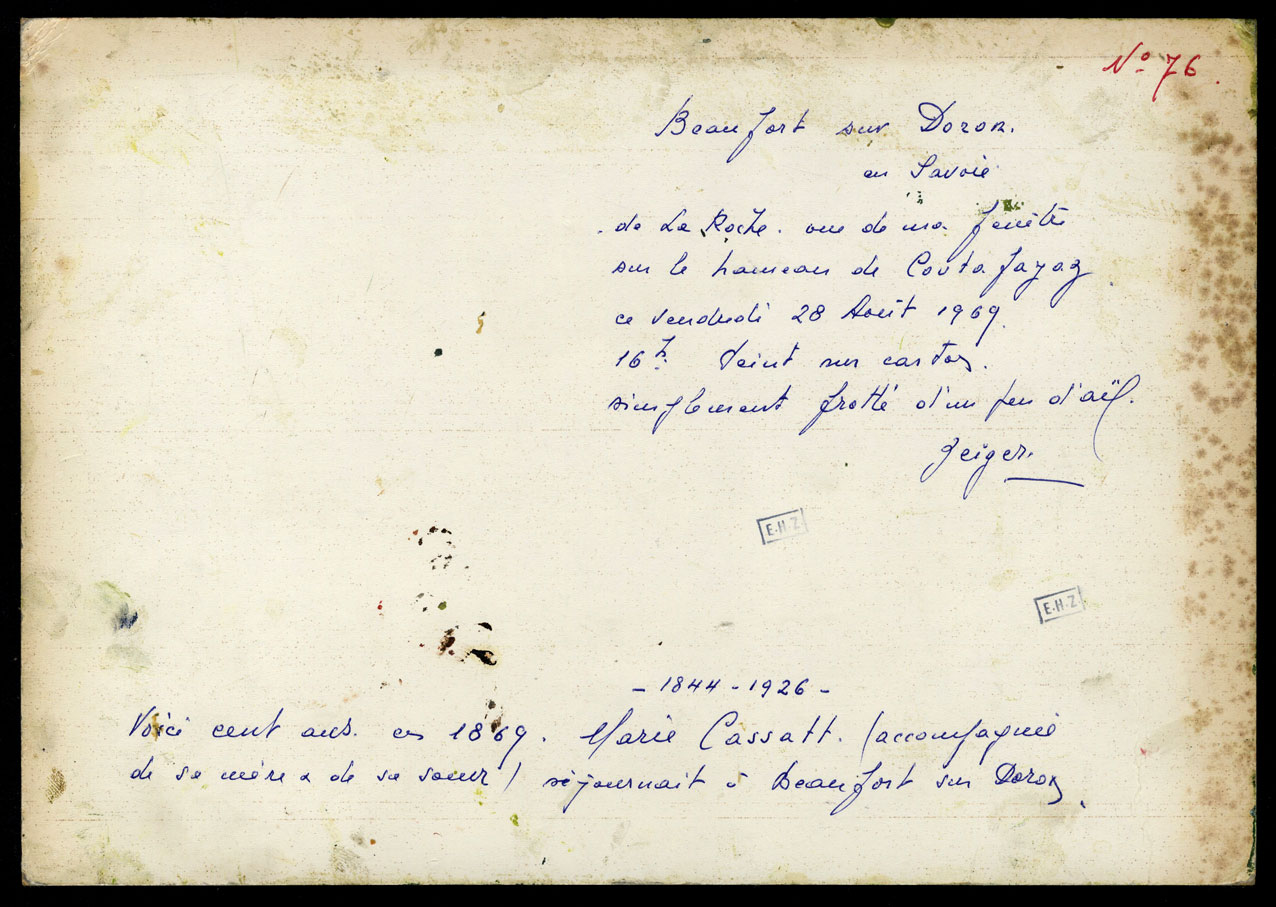 N° 76.
Beaufort sur Doron.
en Savoie
de La Roche. vue de ma fenêtre
sur le hameau de Couta fayaz
ce vendredi 28 Août 1969.
16h. Peint sur carton.
simplement frotté d'un peu d'aïl.
Zeiger.
E-H-Z
E-H-Z
- 1844 - 1926 -
Voici cent ans. en 1869. Marie Cassatt. (accompagnée
de sa mère & de sa soeur) séjournait à Beaufort sur Doron.